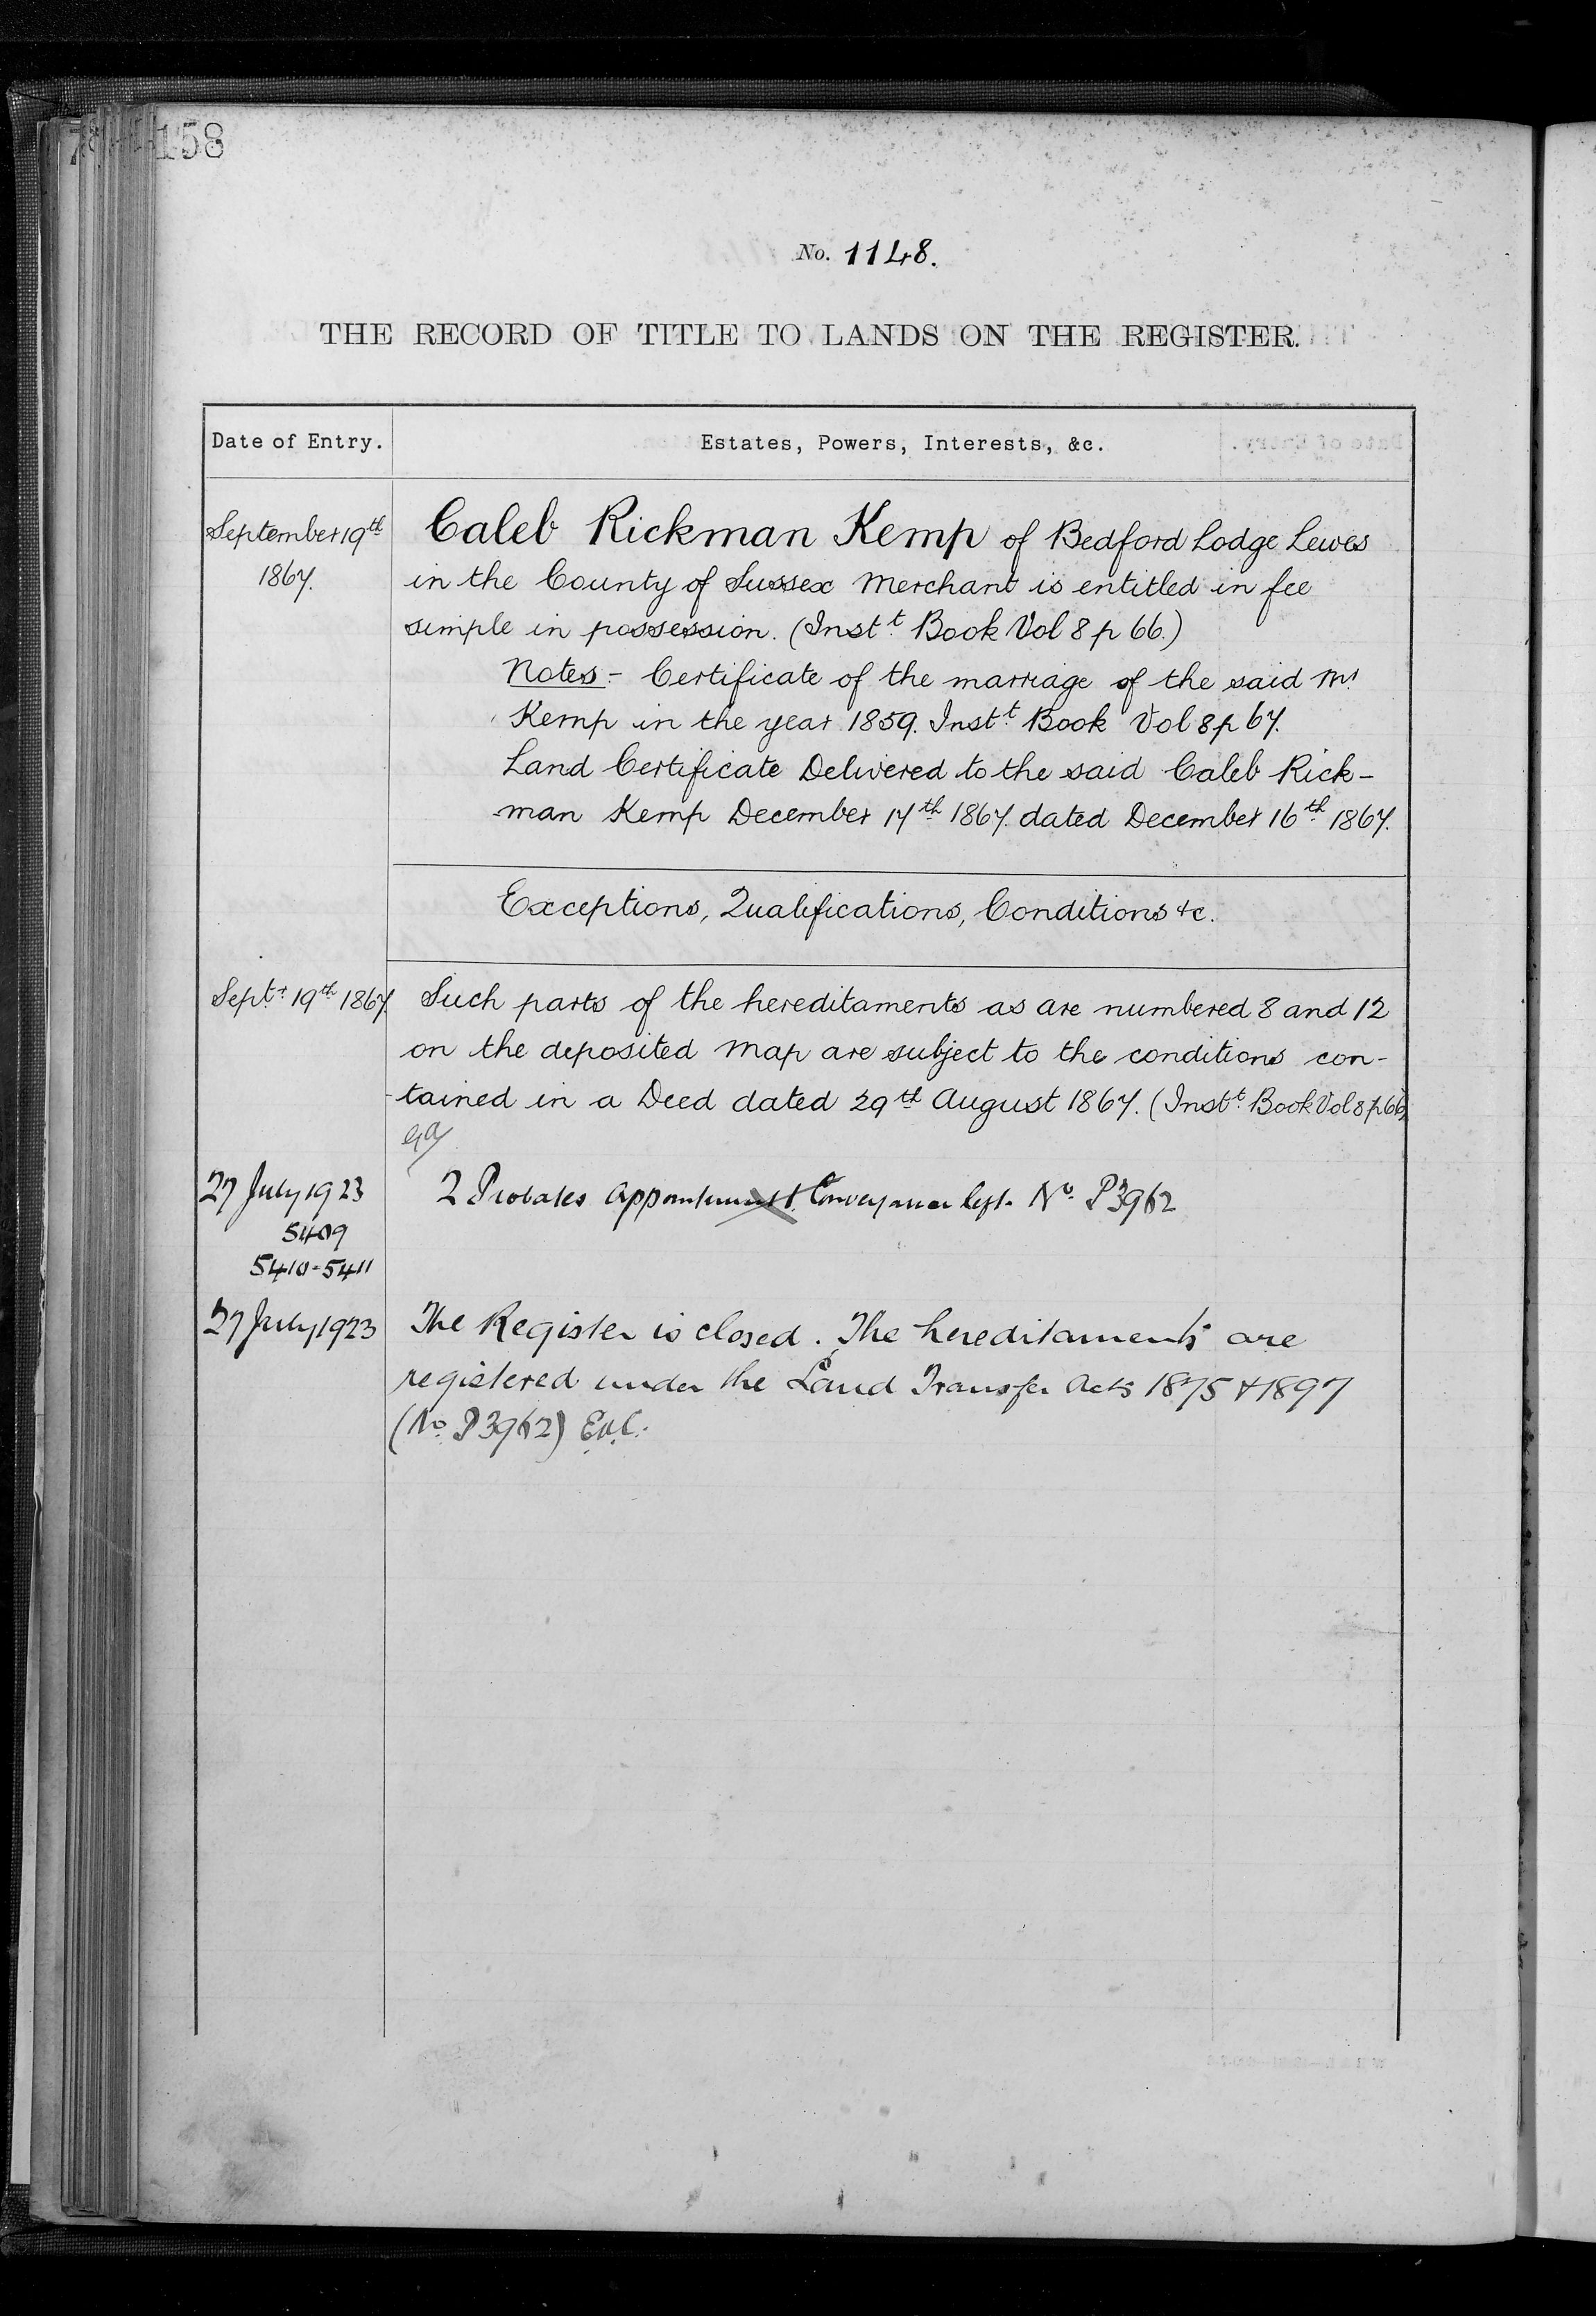 158
No. 1148.
THE RECORD OF TITLE TO LANDS ON THE REGISTER.
Date of Entry.
Estates, Powers, Interests, &c.
September 19th
1867.
Caleb Rickman Kemp of Bedford Lodge Lewes
in the County of Sussex Merchant is entitled in fee
simple in possession. (Instt Book Vol 8 p 66.)
Notes - Certificate of the marriage of the said Mr
Kemp in the year 1859. Instt Book Vol 8 p 67.
Land Certificate Delivered to the said Caleb Rick-
man Kemp December 17th 1867. dated December 16th 1867.
Exceptions, Qualifications, Conditions &c.
Septr 19th 1867.
Such parts of the hereditaments as are numbered 8 and 12
on the deposited map are subject to the conditions con-
tained in a Deed dated 29th August 1867. (Instt Book Vol 8 p 66)
27 July 1923
5409
5410-5411
2 Probates Appointment Conveyance left. No. P3962
27 July 1923
The Register is closed. The hereditaments are
registered under the Land Transfer Acts 1875 & 1897
(No. P3962)